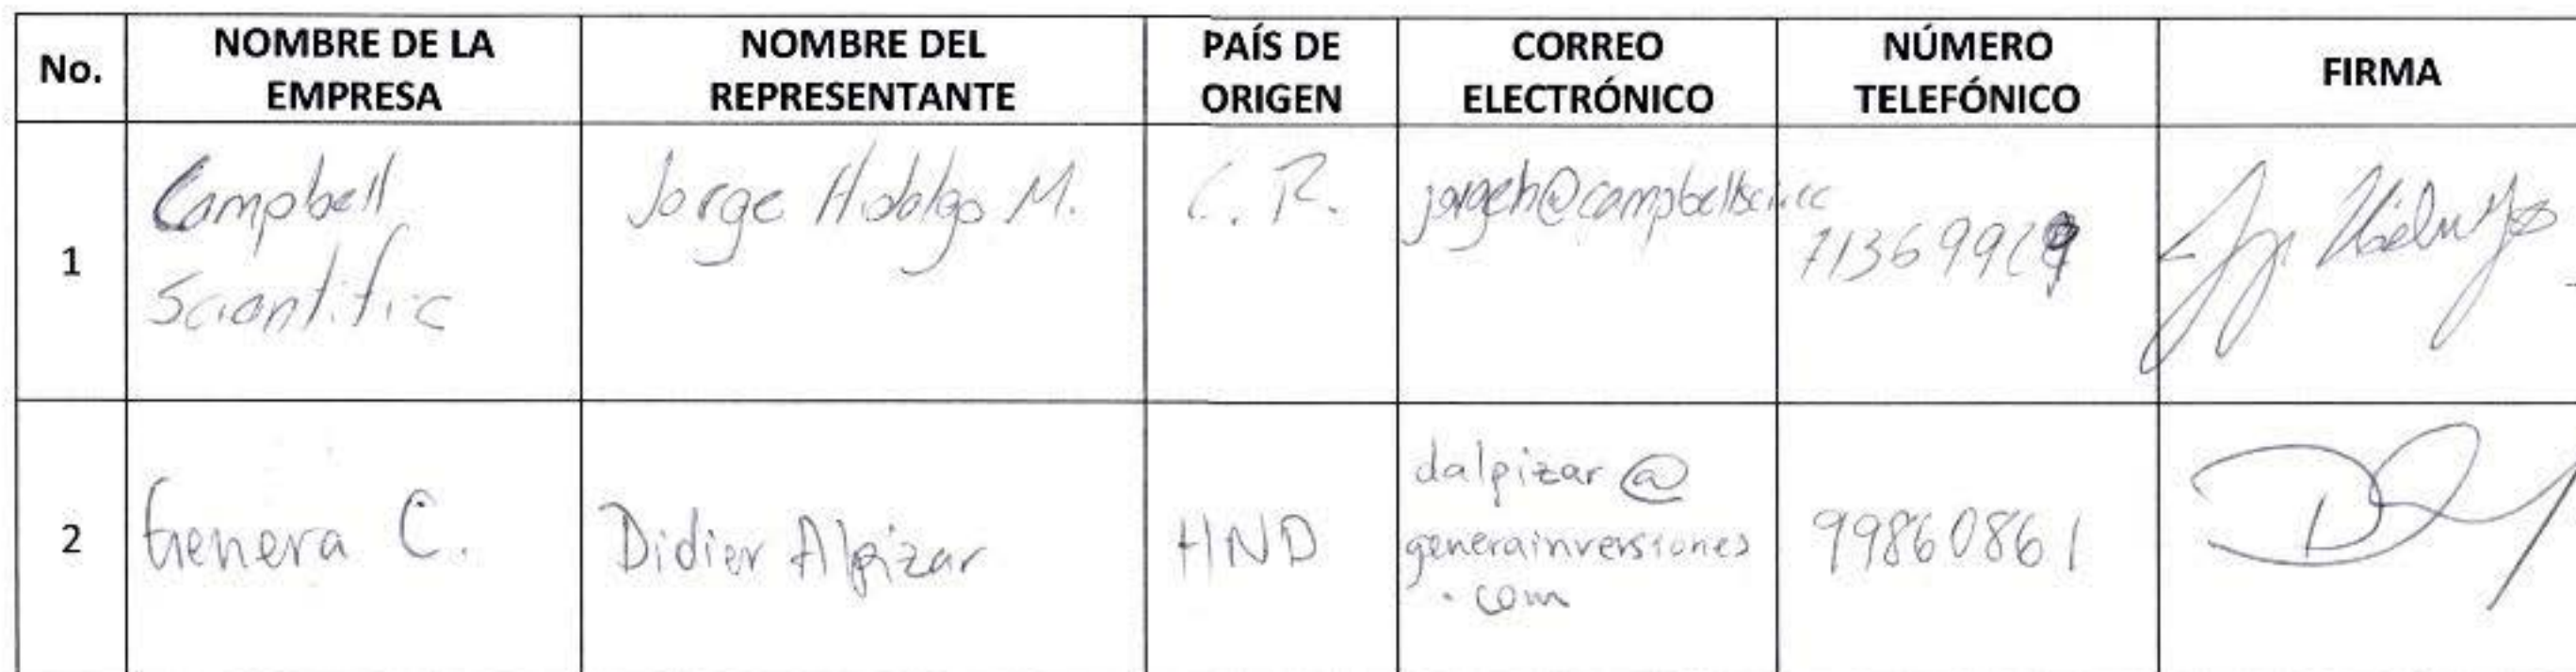 No. NOMBRE DE LA EMPRESA NOMBRE DEL REPRESENTANTE PAÍS DE ORIGEN CORREO ELECTRÓNICO NÚMERO TELEFÓNICO FIRMA
1 Campbell Scientific Jorge Hidalgo M. C.R.
2 Genera C. Didier Alpizar HND dalpizar@generainversiones.com 99860861